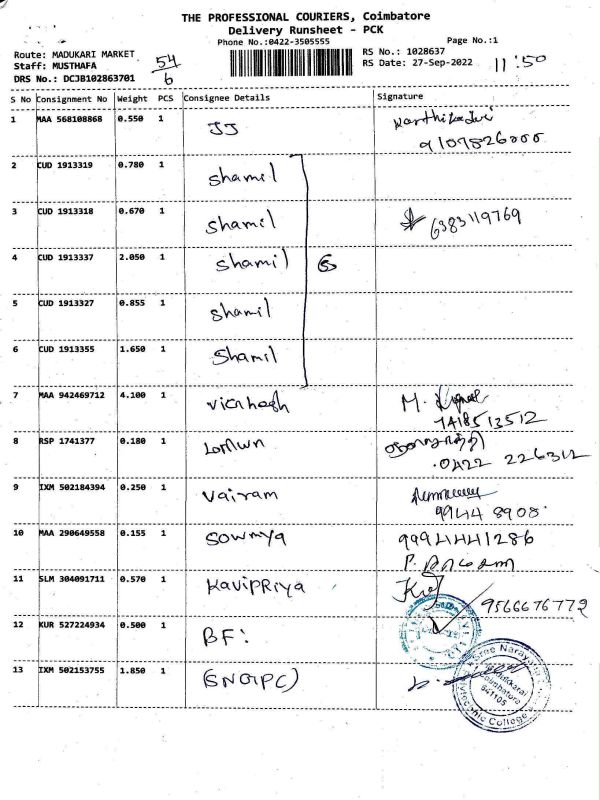 THE PROFESSIONAL COURIERS, Coimbatore
Delivery Runsheet - PCK
Phone No.:0422-3505555 Page No.:1
Route: MADUKARI MARKET 54/6 RS No.: 1028637
Staff: MUSTHAFA RS Date: 27-Sep-2022 11:50
DRS No.: DCJB102863701
S No Consignment No Weight PCS Consignee Details Signature
1 MAA 568108868 0.550 1 JJ
2 CUD 1913319 0.780 1 Shamil
3 CUD 1913318 0.670 1 Shamil 6383119769
4 CUD 1913337 2.050 1 Shamil 5
5 CUD 1913327 0.855 1 Shamil
6 CUD 1913355 1.650 1 Shamil
7 MAA 942469712 4.100 1 M.
7418513512
8 RSP 1741377 0.180 1
0422 226312
9 IXM 502184394 0.250 1 Vairam
99444 8908
10 MAA 290649558 0.155 1 Sowmya 9994441286
P.
11 SLM 304091711 0.570 1 Kavipriya
9566676772
12 KUR 527224934 0.500 1 BF:
13 IXM 502153755 1.850 1 (SNGIPC)
641105